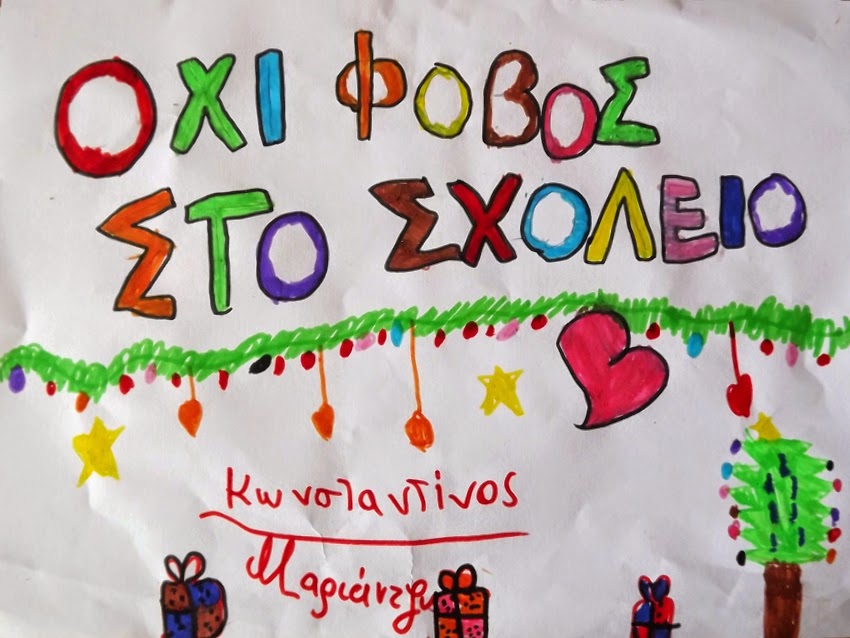 ΟΧΙ ΦΟΒΟΣ
ΣΤΟ ΣΧΟΛΕΙΟ
Κωνσταντίνος